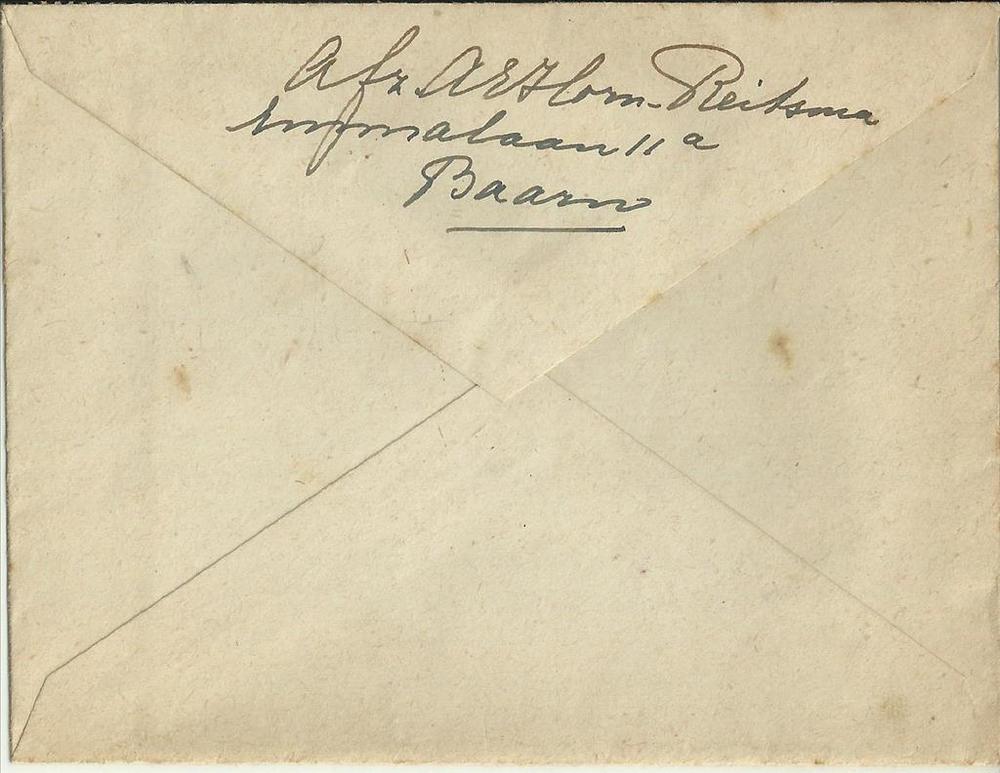 Afz. A E Horn-Reitsma
Emmalaan 11a
Baarn